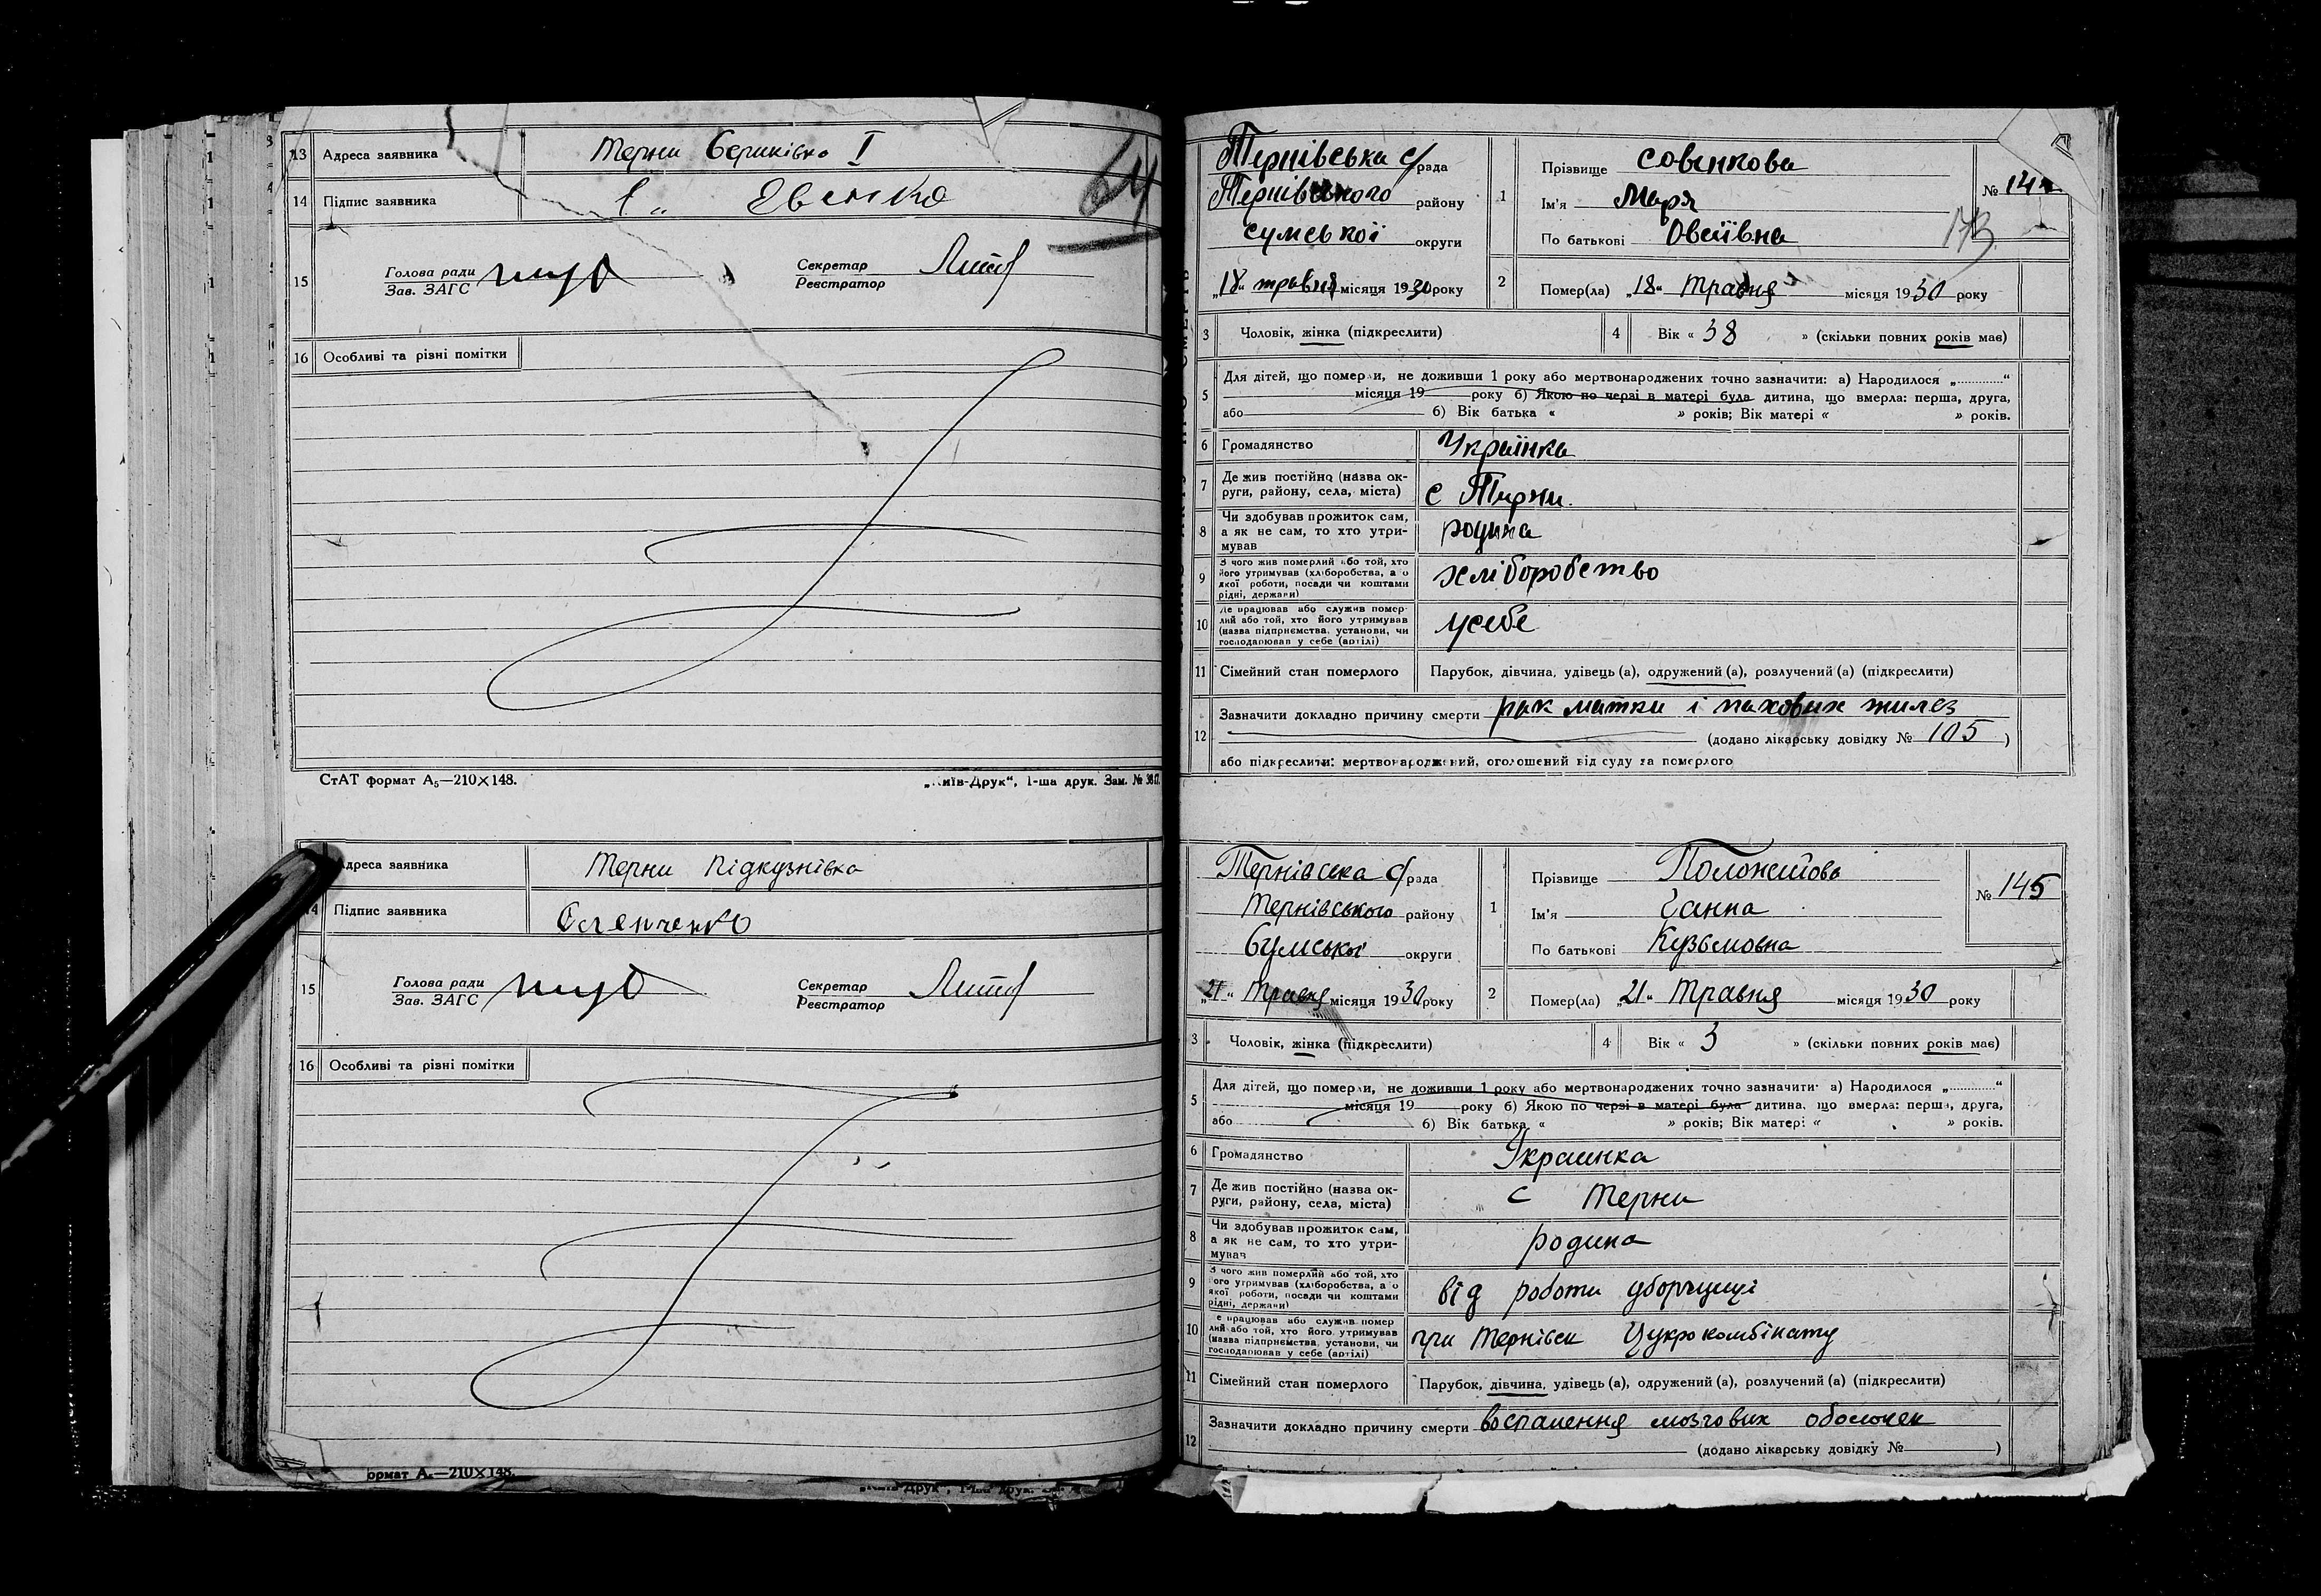 13 Адреса заявника Терни Бериківка I
14 Підпис заявника Євенко
64
15 Голова ради Зав. ЗАГС Секретар Реєстратор
16 Особливі та різні помітки
СтАТ формат А5—210×148. „Київ-Друк“, 1-ша друк. Зам. №
Адреса заявника Терни Підкузнівка
14 Підпис заявника
15 Голова ради Зав. ЗАГС Секретар Реєстратор
16 Особливі та різні помітки
формат А5—210×148.
Друк“, 1-ша друк.
Тернівська с/рада
Тернівського району
Сумської округи
„18“ травня місяця 1930 року
1 Прізвище Совєнкова
Ім'я Маря
По батькові Овсіївна
№ 144
173
2 Помер(ла) „18“ Травня місяця 1930 року
3 Чоловік, жінка (підкреслити)
4 Вік « 38 » (скільки повних років має)
5 Для дітей, що померли, не доживши 1 року або мертвонароджених точно зазначити: а) Народилося „............“
місяця 19 року б) Якою по черзі в матері була дитина, що вмерла: перша, друга,
або б) Вік батька « » років; Вік матері « » років.
6 Громадянство Українка
7 Де жив постійно (назва округи, району, села, міста) с Терни.
8 Чи здобував прожиток сам, а як не сам, то хто утримував родина
9 З чого жив померлий або той, хто його утримував (хліборобства, а о якої роботи, посади чи коштами рідні, держави) хліборобство
10 Де працював або служив померлий або той, хто його утримував (назва підприємства, установи, чи господарював у себе (артілі) усебе
11 Сімейний стан померлого Парубок, дівчина, удівець (а), одружений (а), розлучений (а) (підкреслити)
12 Зазначити докладно причину смерти рак матки і пахових жилез
(додано лікарську довідку № 105 )
або підкреслити: мертвонароджений, оголошений від суду за померлого
Тернівська с/рада
Тернівського району
Сумської округи
„21“ Травня місяця 1930 року
1 Прізвище
Ім'я Ганна
По батькові Кузьмовна
№ 145
2 Помер(ла) „21“ Травня місяця 1930 року
3 Чоловік, жінка (підкреслити)
4 Вік « 3 » (скільки повних років має)
5 Для дітей, що померли, не доживши 1 року або мертвонароджених точно зазначити: а) Народилося „............“
місяця 19 року б) Якою по черзі в матері була дитина, що вмерла: перша, друга,
або б) Вік батька « » років; Вік матері « » років.
6 Громадянство Украинка
7 Де жив постійно (назва округи, району, села, міста) с Терни
8 Чи здобував прожиток сам, а як не сам, то хто утримував родина
9 З чого жив померлий або той, хто його утримував (хліборобства, а о якої роботи, посади чи коштами рідні, держави) від роботи уборщиці
10 Де працював або служив померлий або той, хто його утримував (назва підприємства, установи, чи господарював у себе (артілі) при Цукрокомбінату
11 Сімейний стан померлого Парубок, дівчина, удівець (а), одружений (а), розлучений (а) (підкреслити)
12 Зазначити докладно причину смерти воспалення мозгових оболочек
(додано лікарську довідку № )